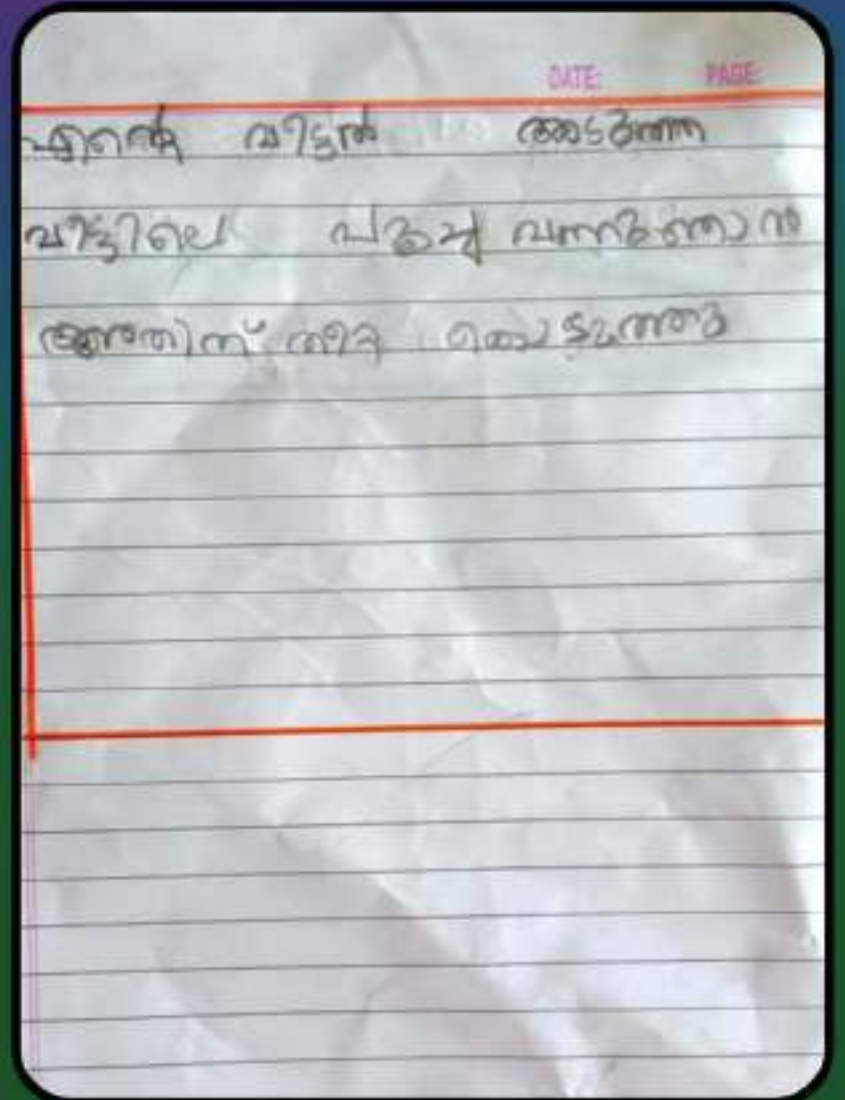 DATE: PAGE:
എന്റെ വീട്ടൽ അടുത്ത
വീട്ടിലെ പൂച്ച വന്നുഞാൻ
അതിന് തീറ്റ കൊടുത്തു